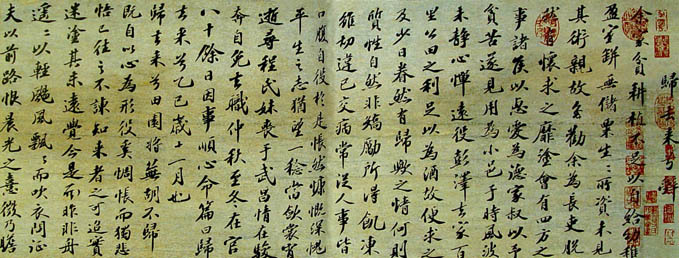 歸去来兮辭
余家貧耕植不足以自給幼稚
盈室缾無儲粟生〻所資未見
其術親故多勸余為長吏脫
然有懷求之靡塗會有四方之
事諸侯以惠愛為德家叔以予
貧苦遂見用為小邑于時風波
未靜心憚遠役彭澤去家百
里公田之利足以為酒故便求之
及少日眷然有歸歟之情何則
質性自然非矯勵所得飢凍
雖切違己交病嘗從人事皆
口腹自役於是悵然慷慨深愧
平生之志猶望一稔當斂裳宵
逝尋程氏妹喪于武昌情在駿
奔自免去職仲秋至冬在官
八十餘日因事順心命篇曰歸
去来兮乙巳歲十一月也
歸去来兮田園將蕪胡不歸
既自以心為形役奚惆悵而獨悲
悟已往之不諫知来者之可追實
迷塗其未遠覺今是而昨非舟
遥〻以輕颺風飄〻而吹衣問征
夫以前路恨晨光之熹微乃瞻